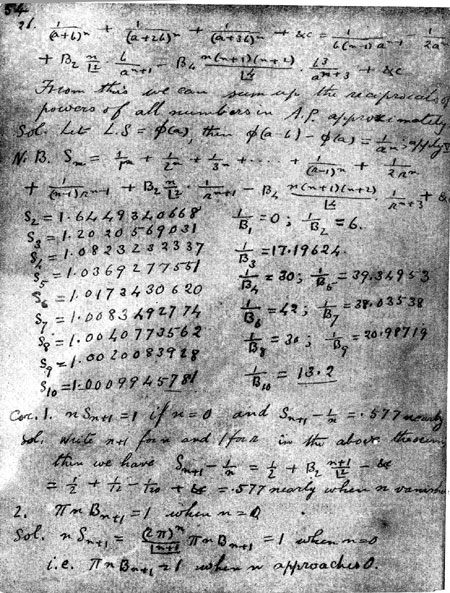 54
26. 1/(a+b)^n + 1/(a+2b)^n + 1/(a+3b)^n + &c = 1/(b(n-1)a^(n-1)) - 1/(2a^n)
+ B₂ n/|2 · b/a^(n+1) - B₄ n(n+1)(n+2)/|4 · b³/a^(n+3) + &c
From this we can sum up the reciprocals of
powers of all numbers in A.P. approximately
Sol. Let L.S = φ(a), then φ(a-b) - φ(a) = 1/a^n; apply
N.B. Sₙ = 1/1^n + 1/2^n + 1/3^n + ····· + 1/(r-1)^n + 1/2r^n
+ 1/((n-1)r^(n-1)) + B₂ n/|2 · 1/r^(n+1) - B₄ n(n+1)(n+2)/|4 · 1/r^(n+3) + &c
S₂ = 1.6449340668 1/B₁ = 0; 1/B₂ = 6.
S₃ = 1.2020569031 1/B₃ = 17.19624.
S₄ = 1.0823232337 1/B₄ = 30; 1/B₅ = 39.34953
S₅ = 1.0369277551
S₆ = 1.0173430620 1/B₆ = 42; 1/B₇ = 38.03538
S₇ = 1.0083492774
S₈ = 1.0040773562 1/B₈ = 30; 1/B₉ = 20.98719
S₉ = 1.0020083928
S₁₀ = 1.0009945781 1/B₁₀ = 13.2
Cor. 1. n Sₙ₊₁ = 1 if n = 0 and Sₙ₊₁ - 1/n = .577 nearly
Sol. Write n+1 for n and 1 for r in the above theorem
then we have Sₙ₊₁ - 1/n = 1/2 + B₂ (n+1)/|2 - &c
= 1/2 + 1/12 - 1/120 + &c = .577 nearly when n vanishes
2. πn Bₙ₊₁ = 1 when n = 0
Sol. n Sₙ₊₁ = (2π)^n/|n+1 πn Bₙ₊₁ = 1 when n = 0
i.e. πn Bₙ₊₁ = 1 when n approaches 0.